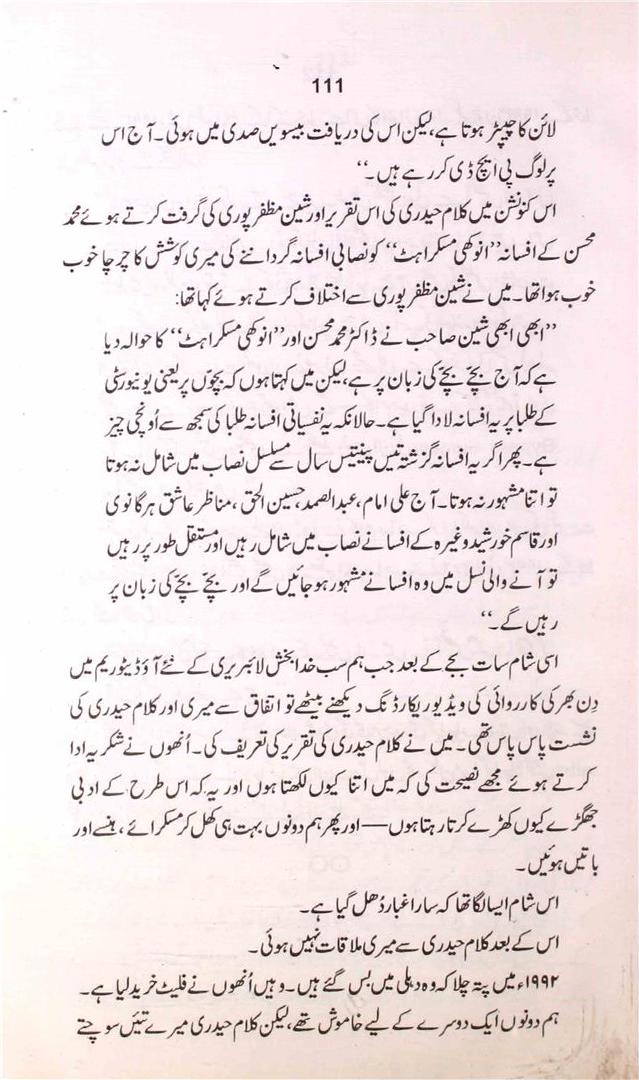 111
لائن کا چیپٹر ہوتا ہے، لیکن اس کی دریافت بیسویں صدی میں ہوئی۔ آج اس
پر لوگ پی ایچ ڈی کر رہے ہیں۔‘‘
اس کنونشن میں کلام حیدری کی اس تقریر اور شین مظفر پوری کی گرفت کرتے ہوئے محمد
محسن کے افسانہ ’’انوکھی مسکراہٹ‘‘ کو نصابی افسانہ گرداننے کی میری کوشش کا چرچا خوب
خوب ہوا تھا۔ میں نے شین مظفر پوری سے اختلاف کرتے ہوئے کہا تھا:
’’ابھی ابھی شین صاحب نے ڈاکٹر محمد محسن اور ’’انوکھی مسکراہٹ‘‘ کا حوالہ دیا
ہے کہ آج بچّے بچّے کی زبان پر ہے، لیکن میں کہتا ہوں کہ بچّوں پر یعنی یونیورسٹی
کے طلبا پر یہ افسانہ لادا گیا ہے۔ حالانکہ یہ نفسیاتی افسانہ طلبا کی سمجھ سے اُونچی چیز
ہے۔ پھر اگر یہ افسانہ گزشتہ تیس پینتیس سال سے مسلسل نصاب میں شامل نہ ہوتا
تو اتنا مشہور نہ ہوتا۔ آج علی امام، عبدالصمد، حسین الحق، مناظر عاشق ہرگانوی
اور قاسم خورشید وغیرہ کے افسانے نصاب میں شامل رہیں اور مستقل طور پر رہیں
تو آنے والی نسل میں وہ افسانے مشہور ہو جائیں گے اور بچّے بچّے کی زبان پر
رہیں گے۔‘‘
اسی شام سات بجے کے بعد جب ہم سب خدا بخش لائبریری کے نئے آؤڈیٹوریم میں
دِن بھر کی کارروائی کی ویڈیو ریکارڈنگ دیکھنے بیٹھے تو اتفاق سے میری اور کلام حیدری کی
نشست پاس پاس تھی۔ میں نے کلام حیدری کی تقریر کی تعریف کی۔ اُنھوں نے شکریہ ادا
کرتے ہوئے مجھے نصیحت کی کہ میں اتنا کیوں لکھتا ہوں اور یہ کہ اس طرح کے ادبی
جھگڑے کیوں کھڑے کرتا رہتا ہوں — اور پھر ہم دونوں بہت ہی کھل کر مسکرائے، ہنسے اور
باتیں ہوئیں۔
اس شام ایسا لگا تھا کہ سارا غبار دُھل گیا ہے۔
اس کے بعد کلام حیدری سے میری ملاقات نہیں ہوئی۔
۱۹۹۲ء میں پتہ چلا کہ وہ دہلی میں بس گئے ہیں۔ وہیں اُنھوں نے فلیٹ خرید لیا ہے۔
ہم دونوں ایک دوسرے کے لیے خاموش تھے، لیکن کلام حیدری میرے تئیں سوچتے